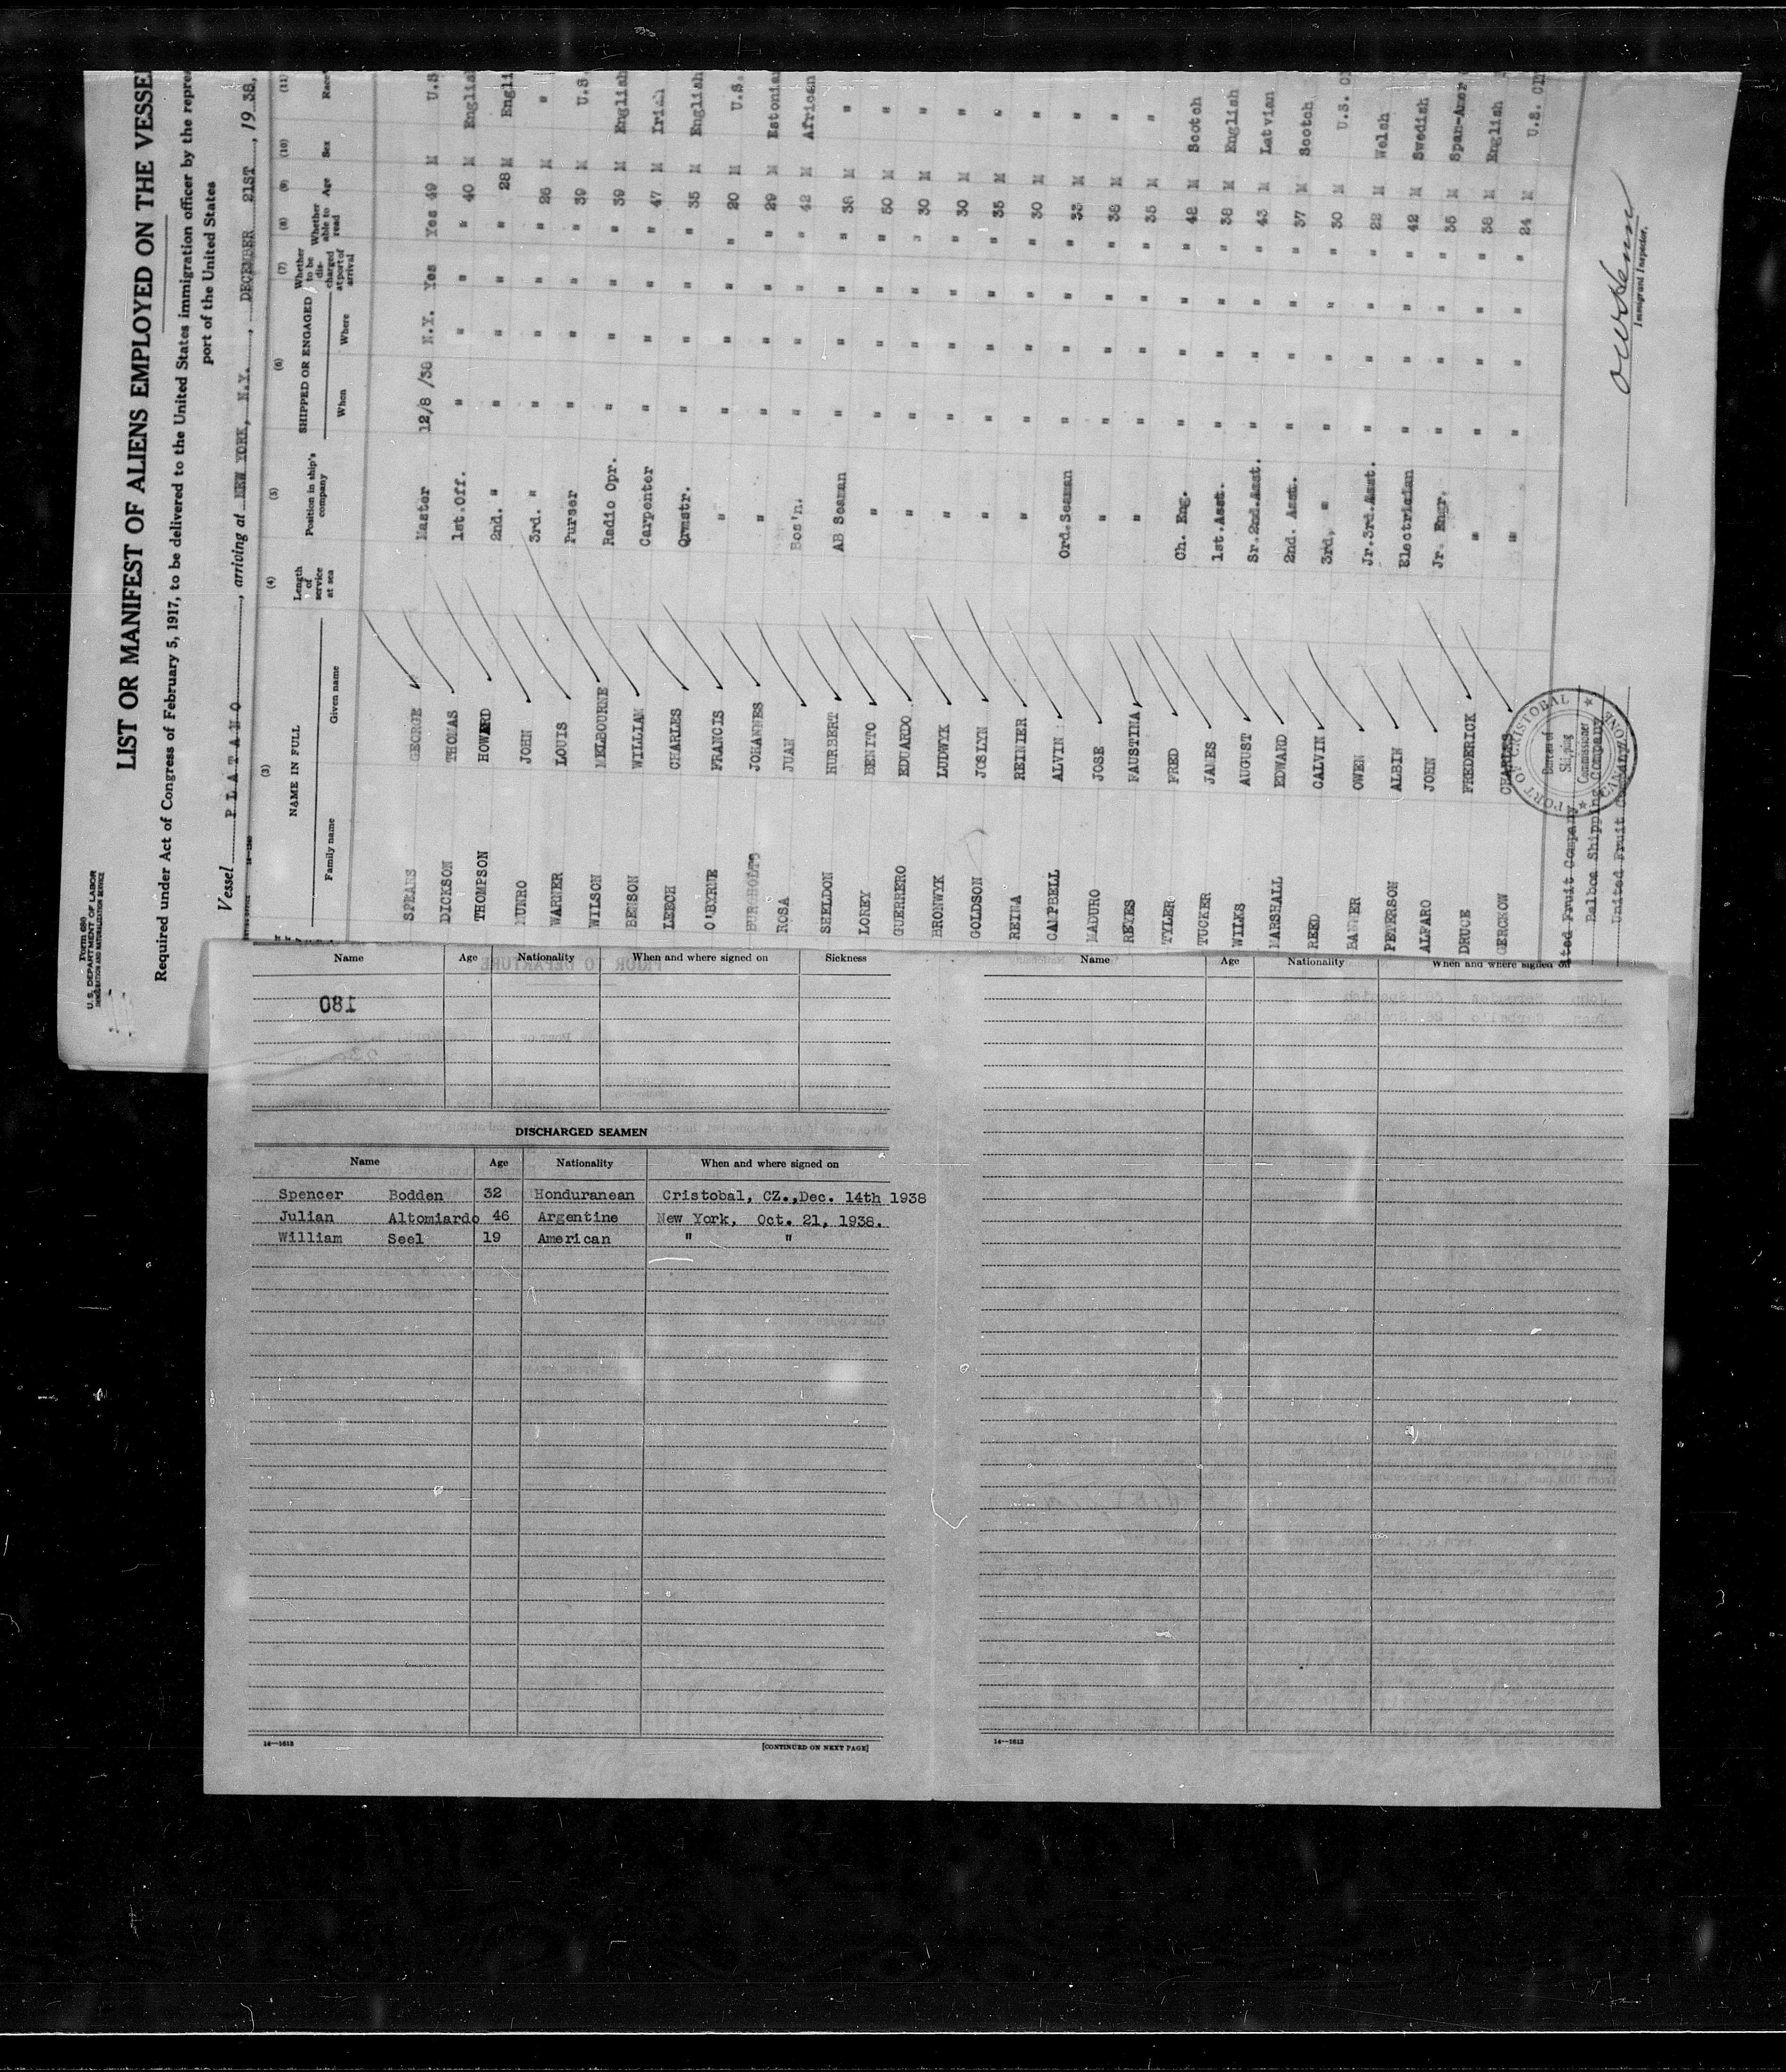 Form 680
U. S. DEPARTMENT OF LABOR
IMMIGRATION AND NATURALIZATION SERVICE
LIST OR MANIFEST OF ALIENS EMPLOYED ON THE VESSE
Required under Act of Congress of February 5, 1917, to be delivered to the United States immigration officer by the repre
port of the United States
Vessel PLATANO, arriving at NEW YORK, N.Y., DECEMBER 21ST, 1938.
(3) (4) (5) (6) (7) (8) (9) (10) (11)
NAME IN FULL Length of service at sea Position in ship's company SHIPPED OR ENGAGED Whether to be discharged at port of arrival Whether able to read Age Sex Race
Family name Given name When Where
SPEARS GEORGE Master 12/8/38 N.Y. Yes Yes 49 M U.S
DICKSON THOMAS 1st.Off. " " " " 40 M English
THOMPSON HOWARD 2nd. " " " " " 28 M Engli
MUNRO JOHN 3rd. " " " " " 26 M "
WARNER LOUIS Purser " " " " 39 M U.S.
WILSON MELBOURNE Radio Opr. " " " " 39 M English
BENSON WILLIAM Carpenter " " " " 47 M Irish
LEECH CHARLES Qrmstr. " " " " 35 M English
O'BYRNE FRANCIS " " " " " 20 M U.S.
JOHANNES " " " " " 29 M Estonia
ROSA JUAN Bos'n. " " " " 42 M African
SHELDON HURBERT AB Seaman " " " " 38 M "
LOREY BENITO " " " " " 50 M "
GUERRERO EDUARDO " " " " " 30 M "
BRONWYK LUDWYK " " " " " 30 M "
GOLDSON JOSLYN " " " " " 35 M "
REINA REINIER " " " " " 30 M "
CAMPBELL ALVIN Ord.Seaman " " " " 33 M "
MADURO JOSE " " " " " 38 M "
REYES FAUSTINA " " " " " 35 M "
TYLER FRED Ch. Eng. " " " " 42 M Scotch
TUCKER JAMES 1st.Asst. " " " " 38 M English
WILKS AUGUST Sr.2nd.Asst. " " " " 43 M Latvian
MARSHALL EDWARD 2nd. Asst. " " " " 37 M Scotch
REED CALVIN 3rd. " " " " " 30 M U.S. CI
BANNER OWEN Jr.3rd.Asst. " " " " 22 M Welsh
PETERSON ALBIN Electrician " " " " 42 M Swedish
ALFARO JOHN Jr. Engr. " " " " 35 M Span-Amer
DRUCE FREDERICK " " " " " 38 M English
CHARLES " " " " " 24 M U.S. CI
ited Fruit Company
Balboa Shipping Company
United Fruit Company
PORT OF CRISTOBAL
Shipping Commissioner
CANAL ZONE
Immigrant Inspector.
Name Age Nationality When and where signed on Sickness
180
DISCHARGED SEAMEN
Name Age Nationality When and where signed on
Spencer Bodden 32 Honduranean Cristobal, CZ.,Dec. 14th 1938
Julian Altomiardo 46 Argentine New York, Oct. 21, 1938.
William Seel 19 American " "
14—1613 [CONTINUED ON NEXT PAGE]
Name Age Nationality When and where signed on
14—1613